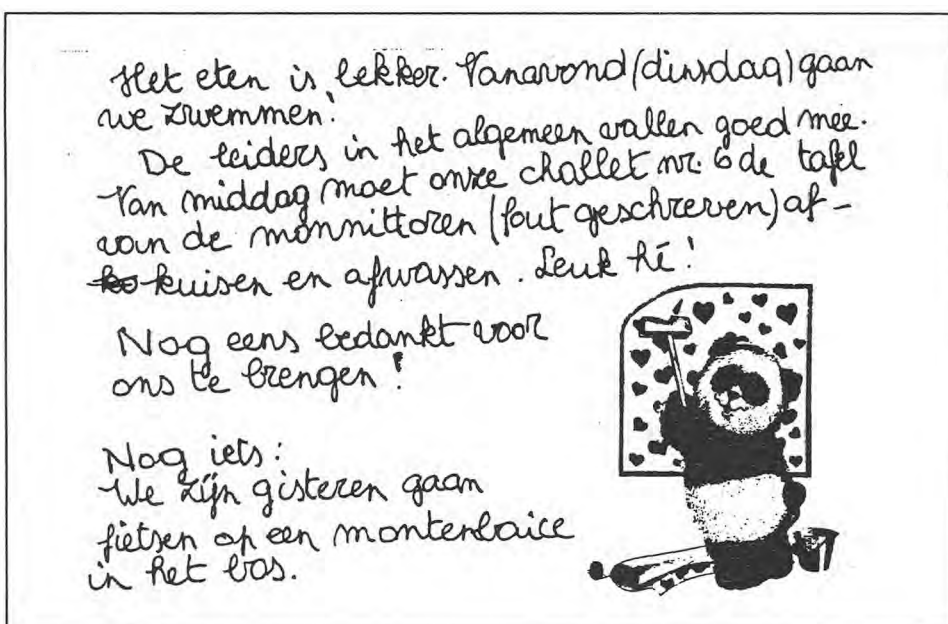 Het eten is lekker. Vanavond (dinsdag) gaan
we zwemmen!
De leiders in het algemeen vallen goed mee.
Van middag moet onze challet nr. 6 de tafel
van de monnittoren (fout geschreven) af-
ko kuisen en afwassen. Leuk hé!
Nog eens bedankt voor
ons te brengen!
Nog iets:
We zijn gisteren gaan
fietsen op een montenbaice
in het bos.